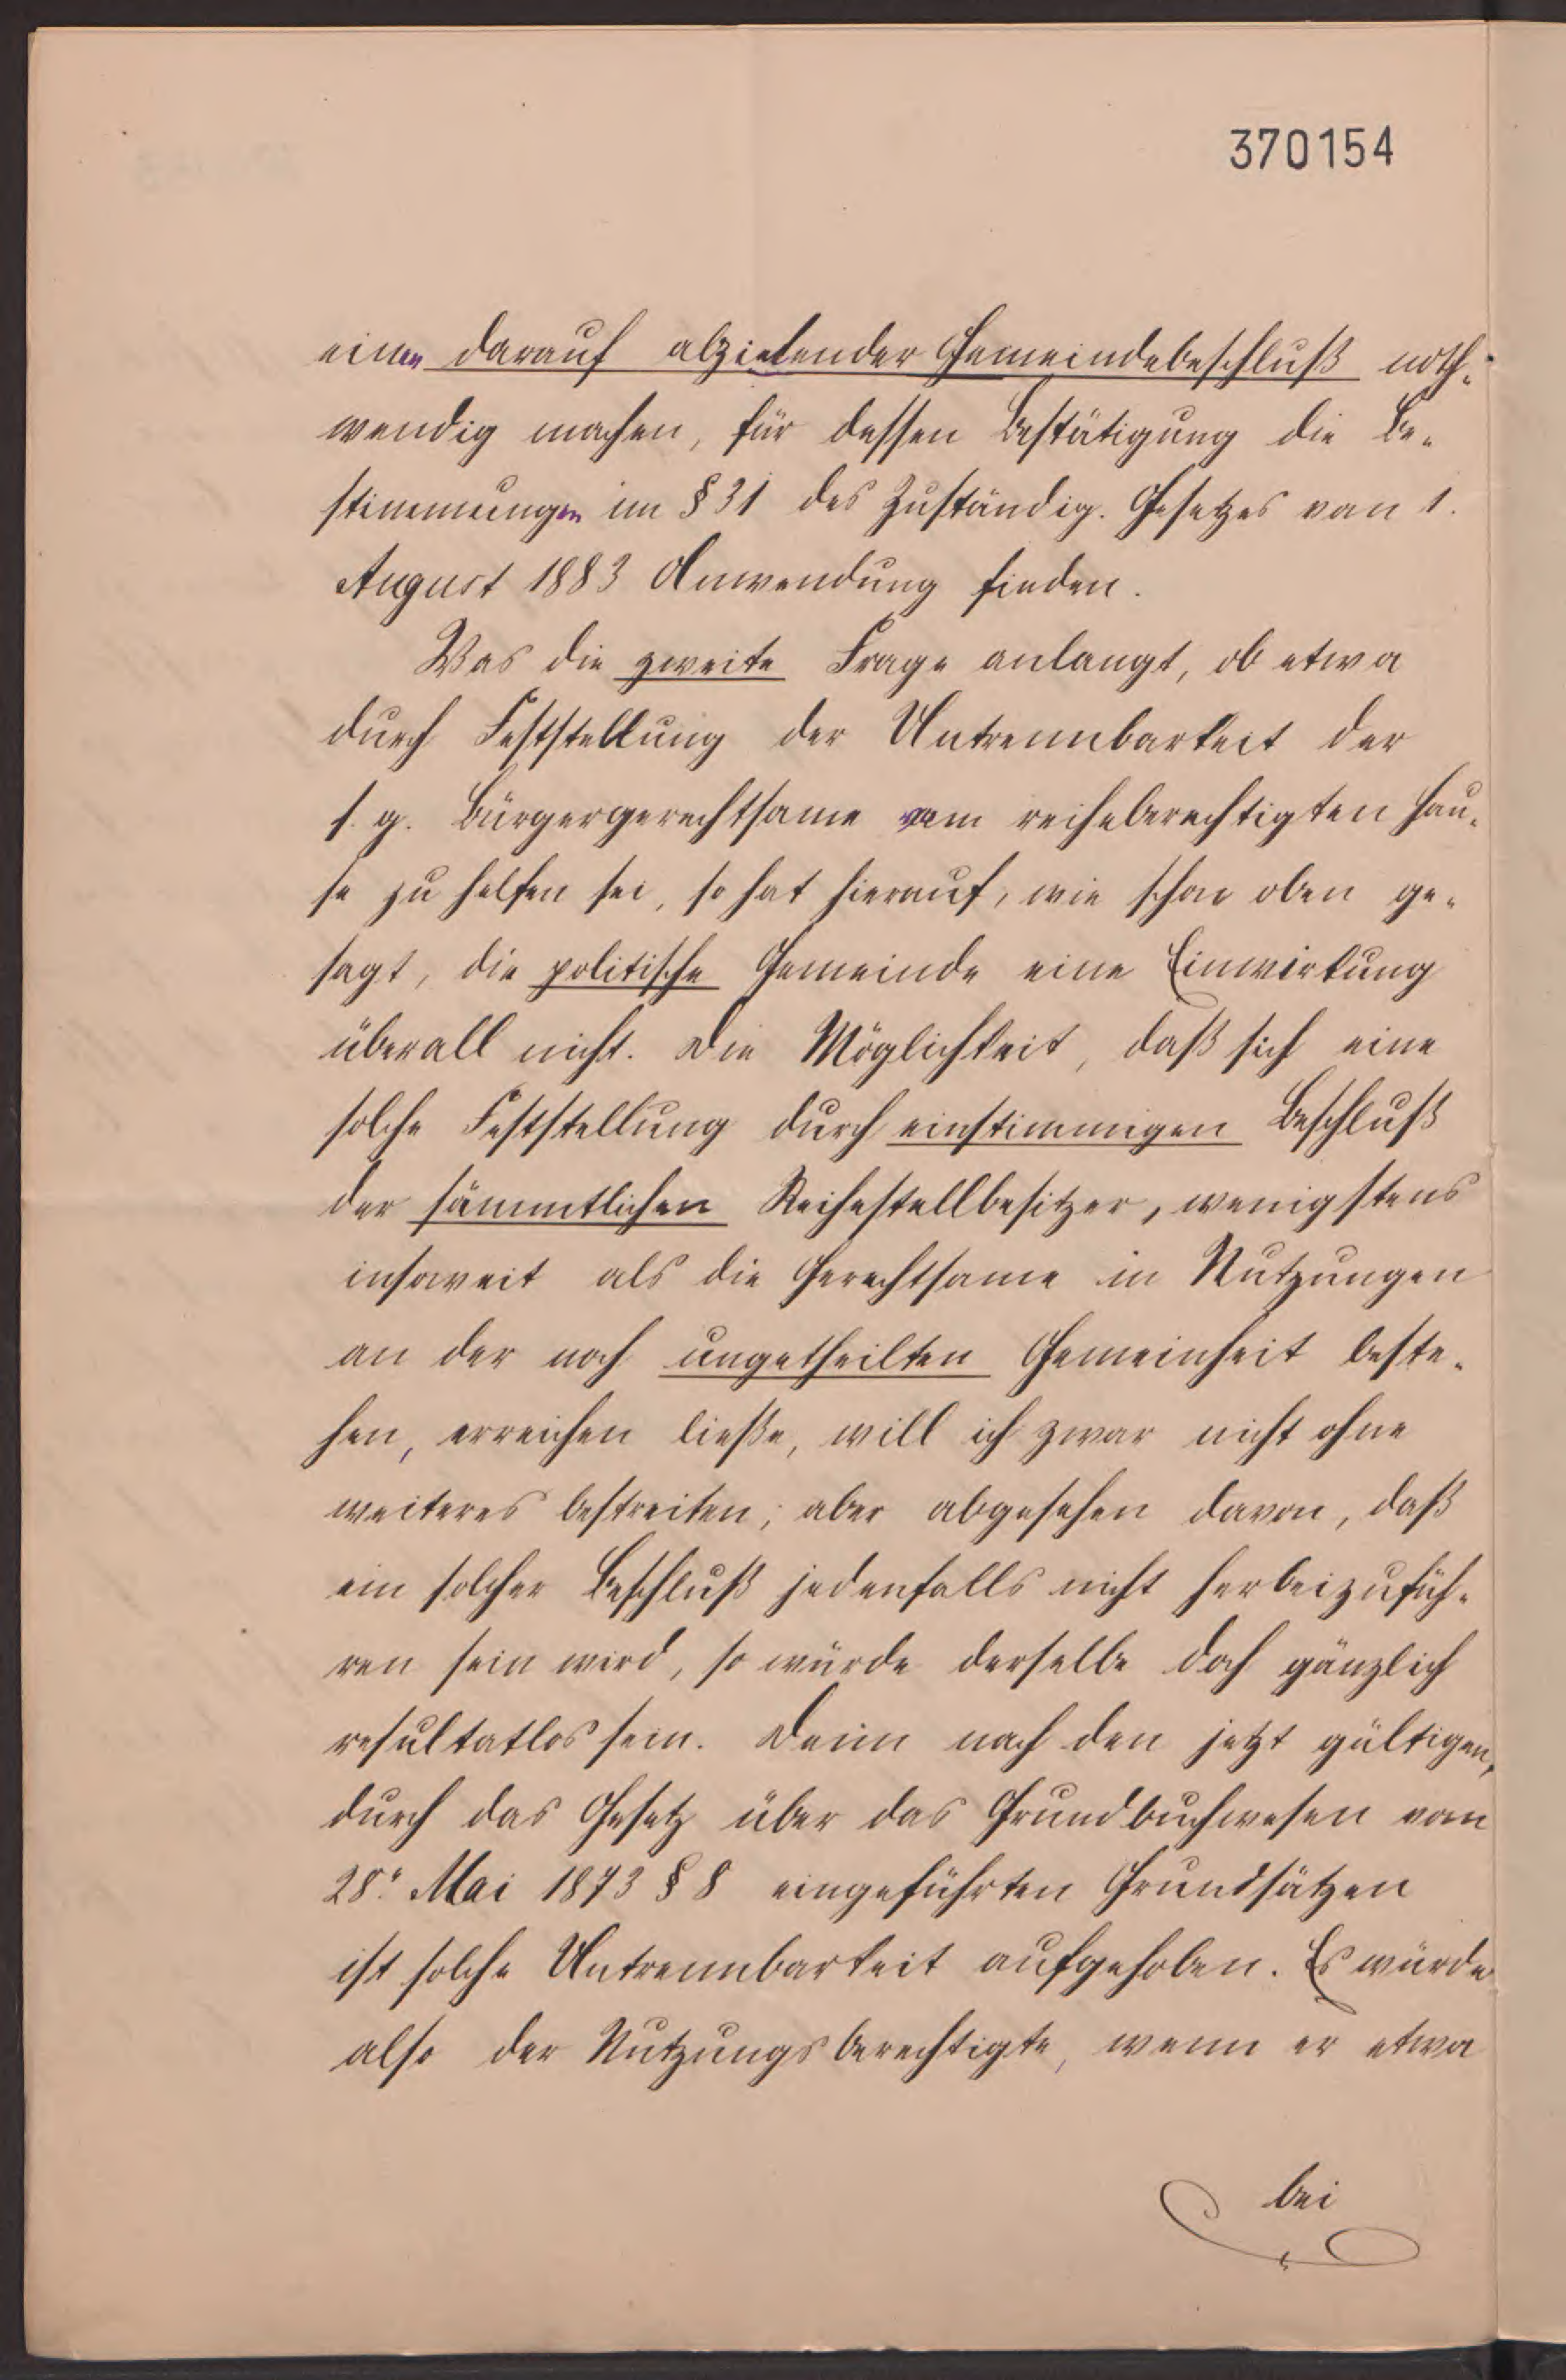 370154
einen darauf abzielender Gemeindebeschluß noth-
wendig machen, für dessen Bestätigung die Be-
stimmungen im § 31 des Zuständig. Gesetzes vom 1.
August 1883 Anwendung finden.
Was die zweite Frage anlangt, ob etwa
durch Feststellung der Untrennbarkeit der
s. g. Bürgergerechtsame vom reiheberechtigten Hau-
se zu helfen sei, so hat hierauf, wie schon oben ge-
sagt, die politische Gemeinde eine Einwirkung
überall nicht. Die Möglichkeit, daß sich eine
solche Feststellung durch einstimmigen Beschluß
der sämmtlichen Reihestellbesitzer, wenigstens
insoweit als die Gerechtsame in Nutzungen
an der noch ungetheilten Gemeinheit beste-
hen, erreichen ließe, will ich zwar nicht ohne
weiteres bestreiten; aber abgesehen davon, daß
ein solcher Beschluß jedenfalls nicht herbeizufüh-
ren sein wird, so würde derselbe doch gänzlich
resultatlos sein. Denn nach den jetzt gültigen,
durch das Gesetz über das Grundbuchwesen vom
28. Mai 1873 § 8 eingeführten Grundsätzen
ist solche Untrennbarkeit aufgehoben. Es würde
also der Nutzungsberechtigte, wenn er etwa
bei